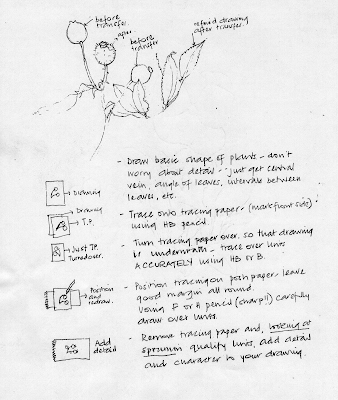 before
transfer.
after
before
transfer
refined drawing
after transfer.
- Draw basic shape of plants - don't
worry about detail - just get central
vein, angle of leaves, intervals between
leaves, etc.
Drawing
Drawing
T.P.
- Trace onto tracing paper - (mark front side)
using HB pencil.
Just TP.
Turned over.
- Turn tracing paper over, so that drawing
is underneath - trace over lines
ACCURATELY using HB or B.
Position
and
redraw.
- Position tracing on posh paper - leave
good margin all round.
Using F or H pencil (sharp!!) carefully
draw over lines.
Add
detail
- Remove tracing paper and, looking at
specimen qualify lines, add detail
and character to your drawing.